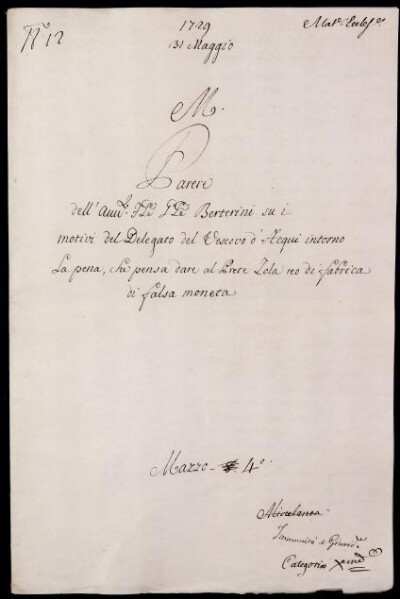 N.º 12
1729
31 Maggio
Mat.e Eccles.e
M.
Parere
dell'Avv.to Berterini su i
motivi del Delegato del Vescovo d'Acqui intorno
La pena, che pensa dare al Prete Zola reo di fabrica
di falsa moneta
Mazzo 4º
Miscelanea
Immunità e Giurisd.e
Categoria